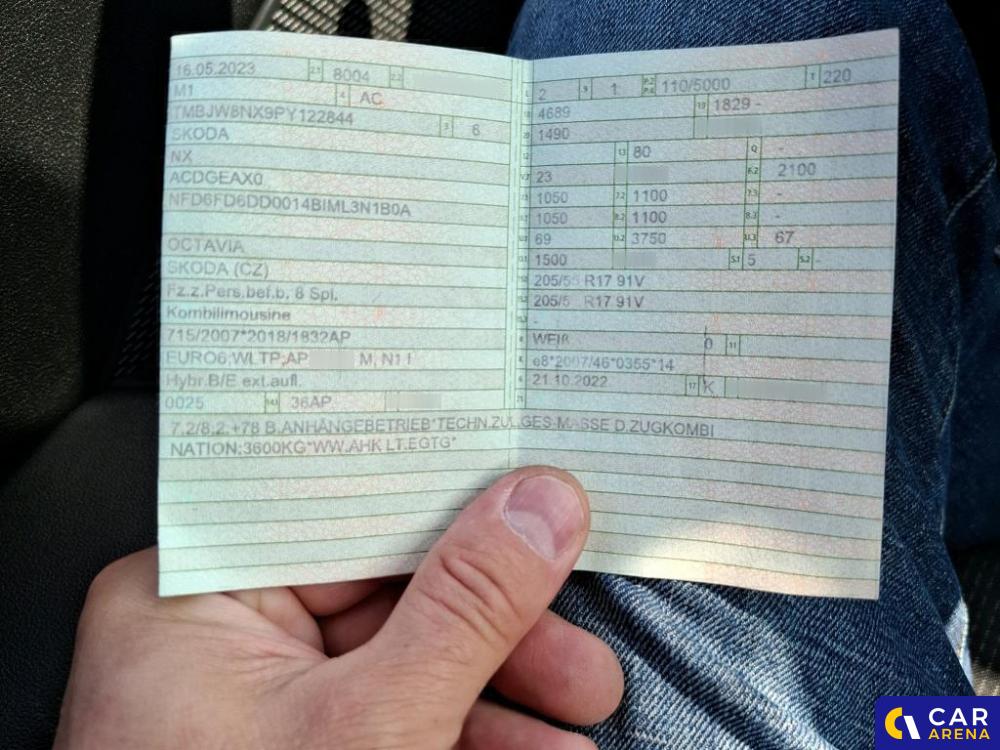 16.05.2023 2.1 8004 2.2
M1 4 AC
TMBJW8NX9PY122844 3 6
SKODA
NX
ACDGEAX0
NFD6FD6DD0014BIML3N1B0A
OCTAVIA
SKODA (CZ)
Fz.z.Pers.bef.b. 8 Spl.
Kombilimousine
715/2007*2018/1832AP
EURO6;WLTP;AP M, N1 I
Hybr.B/E ext.aufl.
0025 14.1 36AP
7.2/8.2.+78 B.ANHÄNGEBETRIEB*TECHN.ZUL.GES-MASSE D.ZUGKOMBI
NATION:3600KG*WW.AHK LT.EGTG*
2 9 1 P.2 P.4 110/5000 T 220
4689 19 1829 -
1490
13 80 Q -
23 F.2 2100
1050 7.2 1100 7.3 -
1050 8.2 1100 8.3 -
69 U.2 3750 U.3 67
1500 S.1 5 S.2 -
205/55 R17 91V
205/5 R17 91V
-
WEIß 0 11
e8*2007/46*0355*14
21.10.2022 17 K
CAR
ARENA